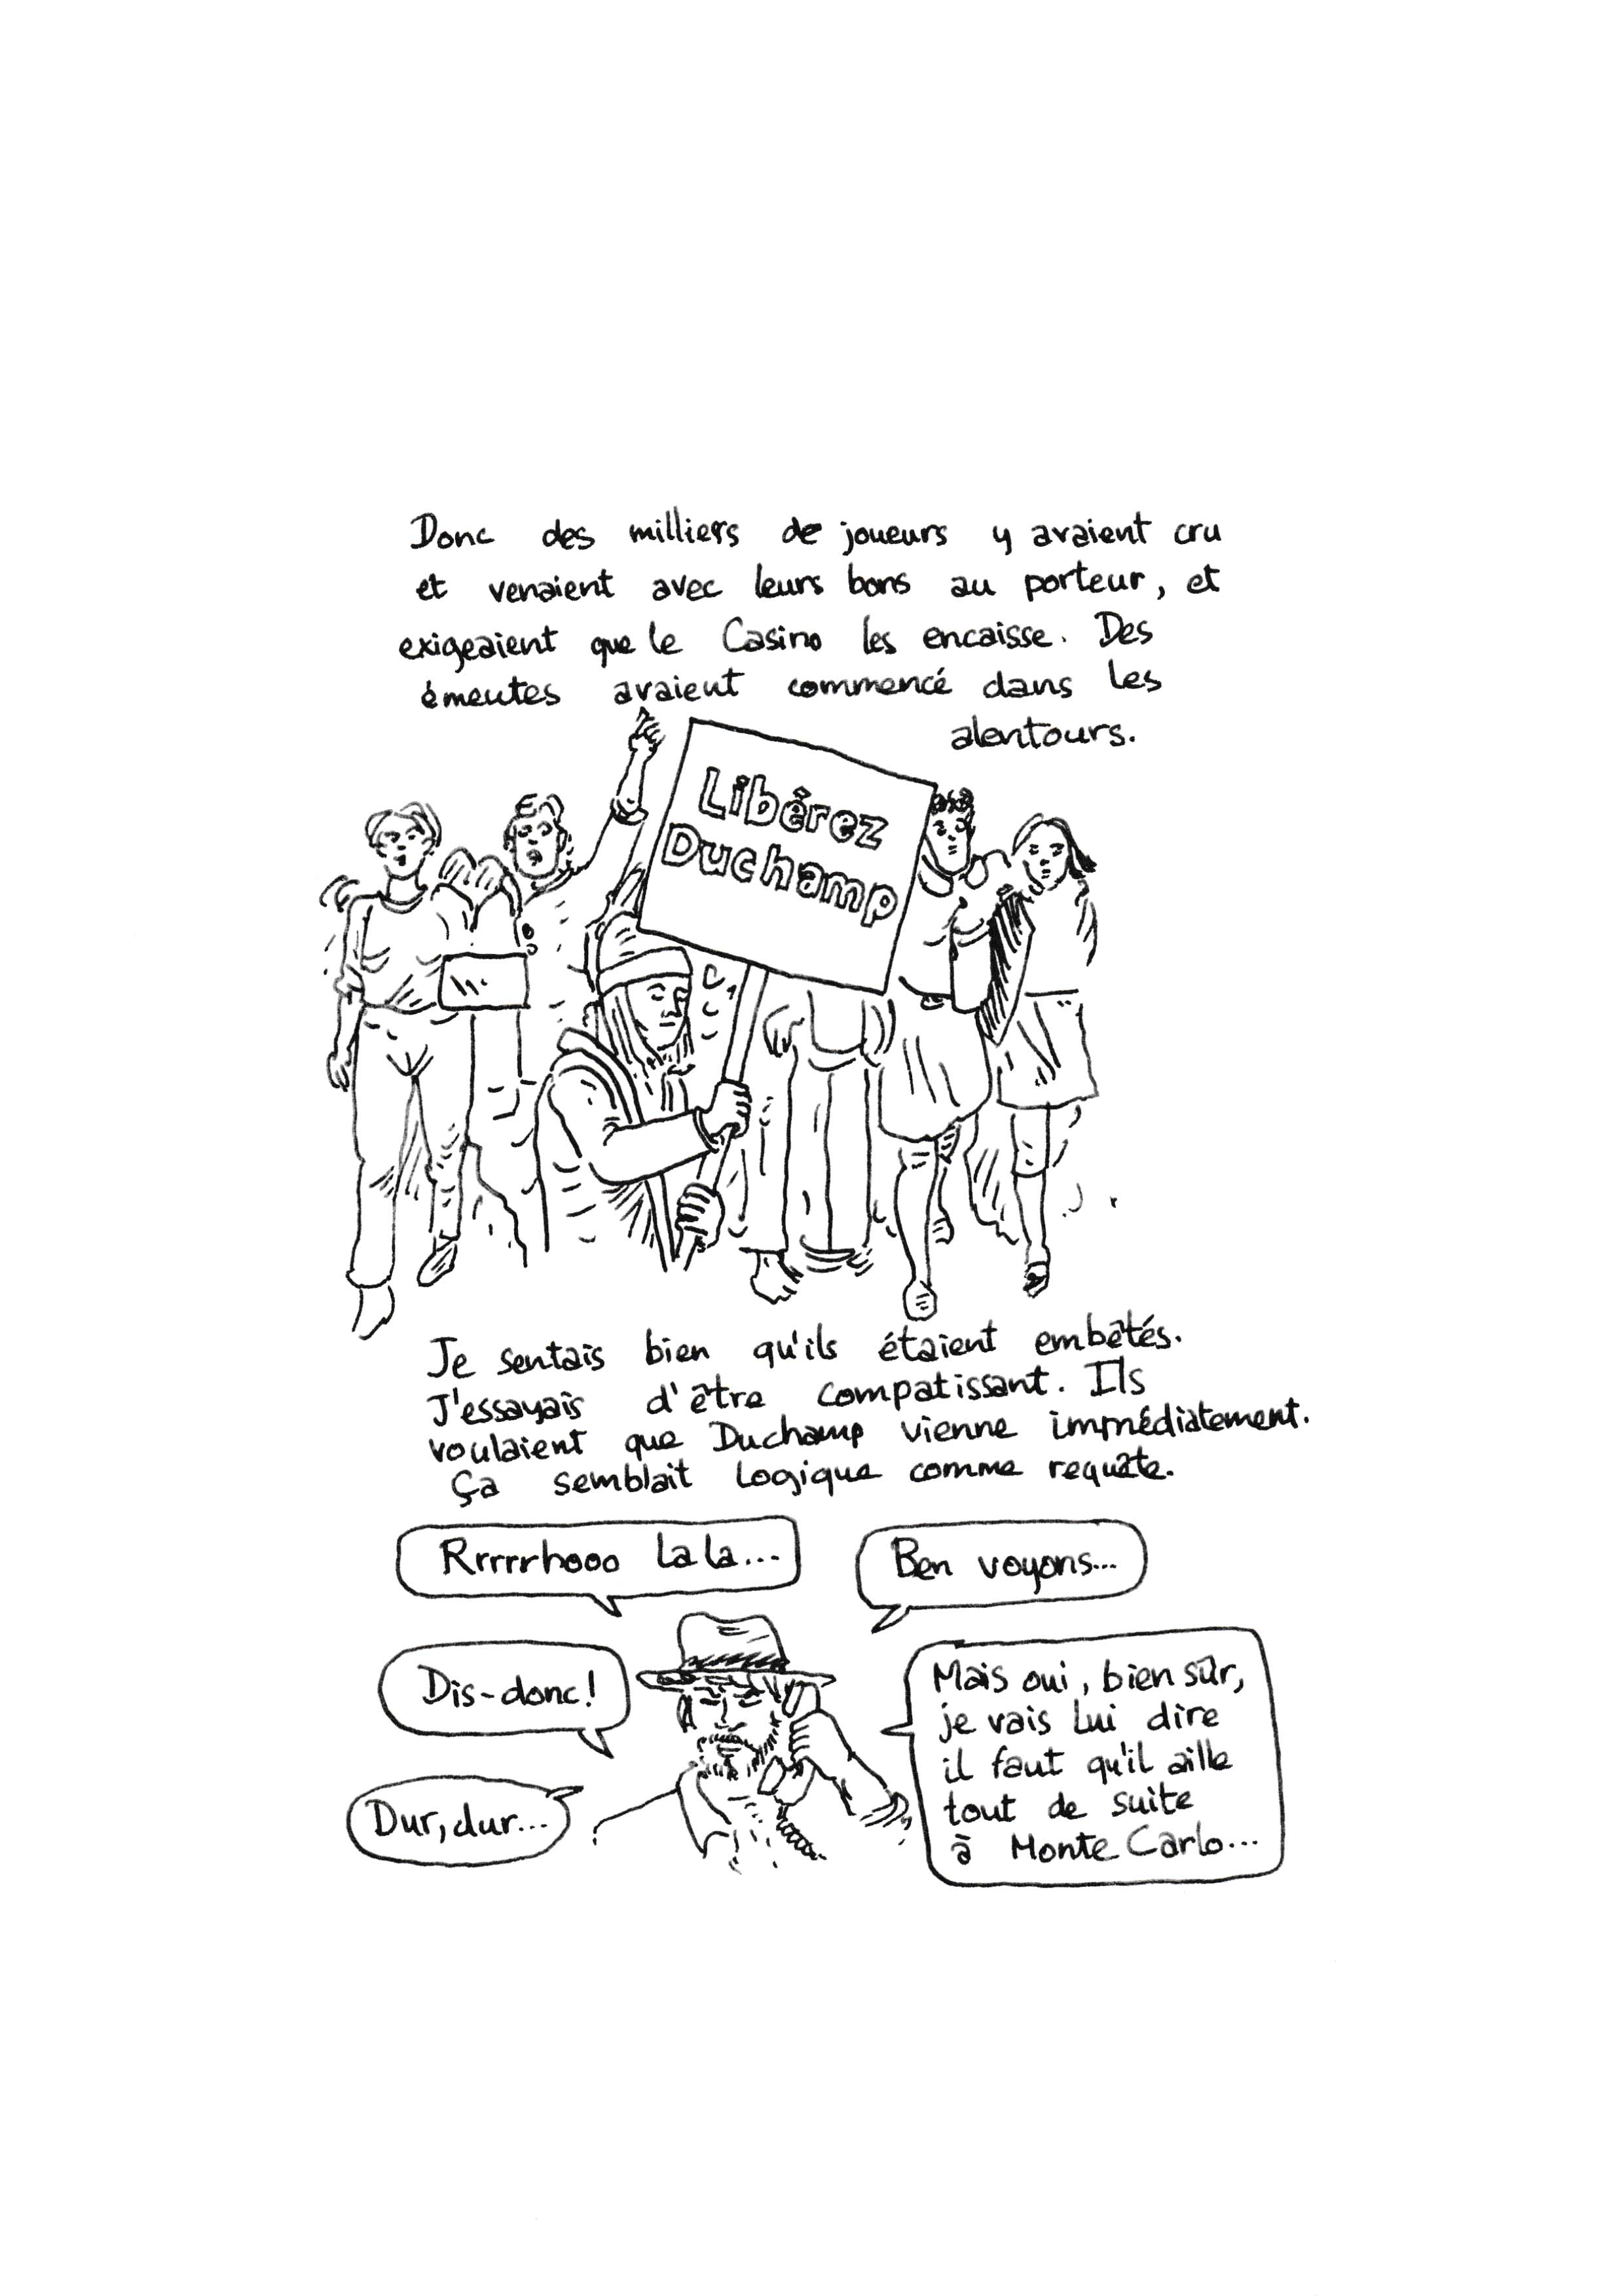 Donc des milliers de joueurs y avaient cru
et venaient avec leurs bons au porteur, et
exigeaient que le Casino les encaisse. Des
émeutes avaient commencé dans les
alentours.
Libérez
Duchamp
Je sentais bien qu'ils étaient embêtés.
J'essayais d'être compatissant. Ils
voulaient que Duchamp vienne immédiatement.
Ça semblait logique comme requête.
Rrrrrhooo la la...
Ben voyons...
Dis-donc!
Dur, dur...
Mais oui, bien sûr,
je vais lui dire
il faut qu'il aille
tout de suite
à Monte Carlo...